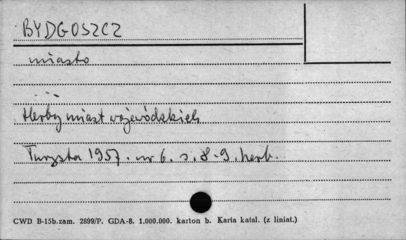 BYDGOSZCZ
miasto
...
Herby miast wojewódzkich
Turysta 1957. nr 6. s. 8-9. herb.
CWD B-15b.zam. 2899/P. GDA-8. 1.000.000. karton b. Karta katal. (z liniat.)